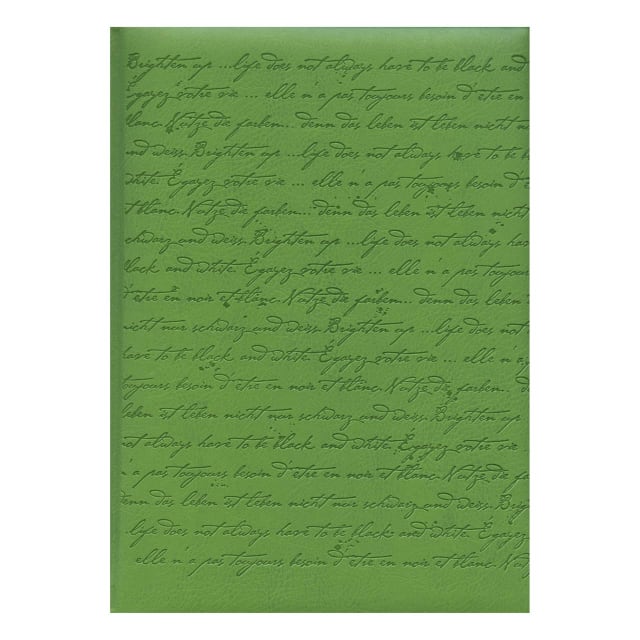 Brighten up ...life does not always have to be black and
Égayez votre vie ... elle n'a pas toujours besoin d'etre en
blanc. Nutze die farben... denn das leben ist nicht n
und weiss. Brighten up ...life does not always have to be b
white. Égayez votre vie ... elle n'a pas toujours besoin d'e
et blanc. Nutze die farben... denn das leben ist nicht
schwarz und weiss. Brighten up ...life does not always hav
black and white. Égayez votre vie ... elle n'a pas toujours
d'etre en noir et blanc. Nutze die farben... denn das leben
nicht nur schwarz und weiss. Brighten up ...life does not
have to be black and white. Égayez votre vie ... elle n'a
toujours besoin d'etre en noir et blanc. Nutze die farben... d
leben ist nicht nur schwarz und weiss. Brighten up
not always have to be black and white. Égayez votre vie
n'a pas toujours besoin d'etre en noir et blanc. Nutze die f
denn das leben ist nicht nur schwarz und weiss. Brighten
...life does not always have to be black and white. Égayez
elle n'a pas toujours besoin d'etre en noir et blanc. Nut